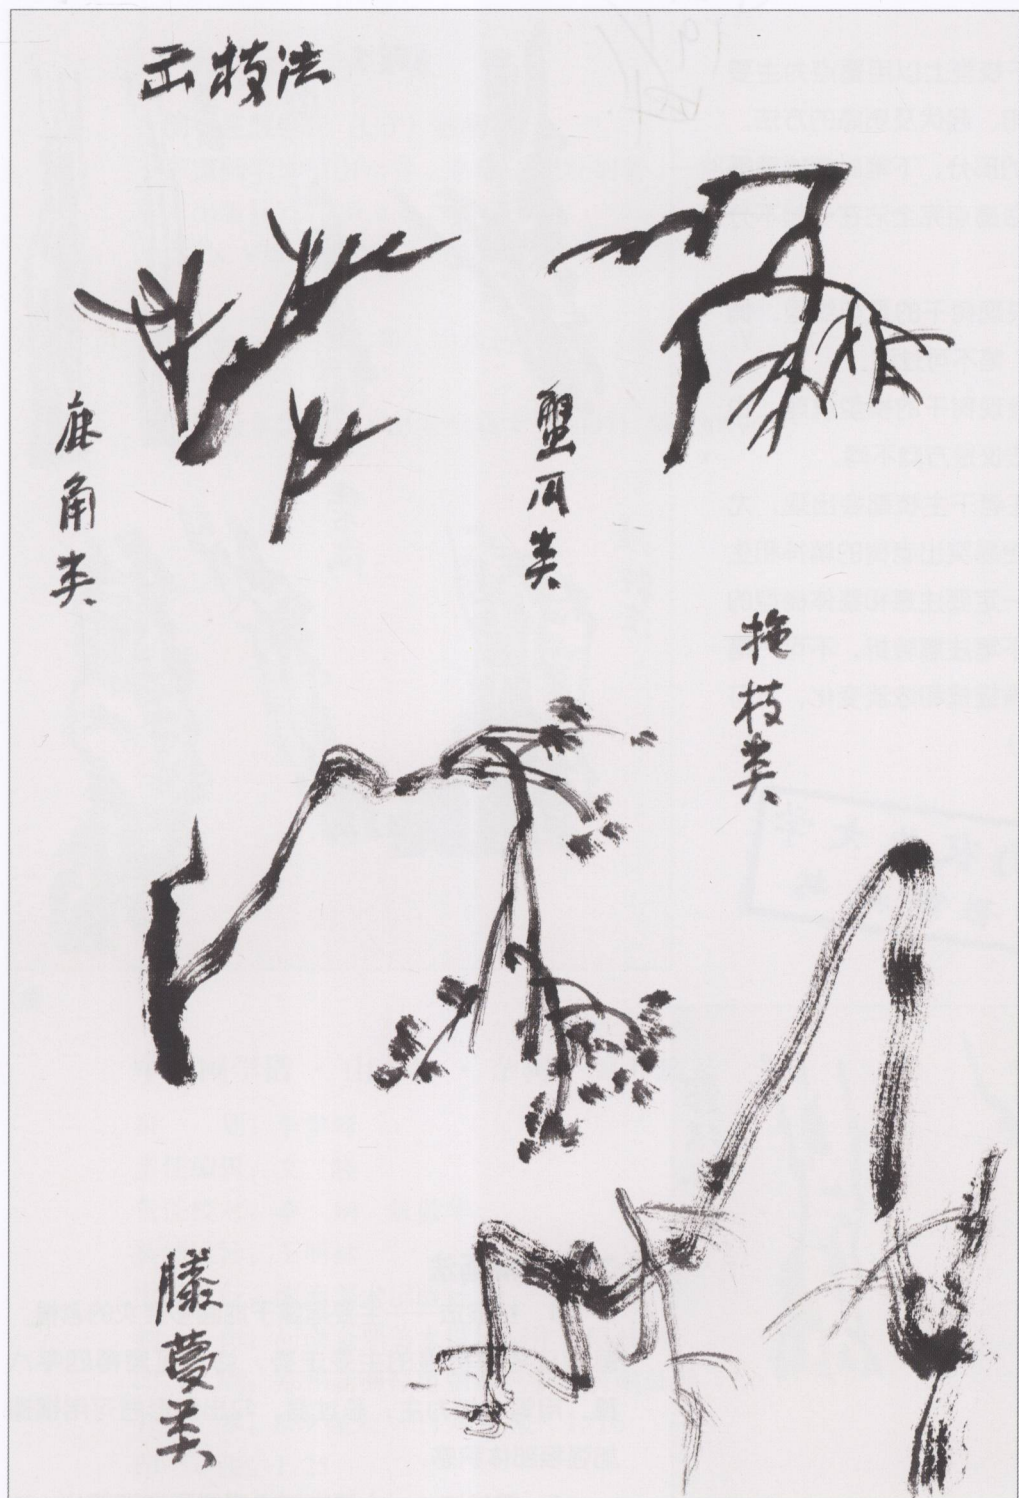 出枝法
鹿角类
蟹爪类
拖枝类
藤蔓类